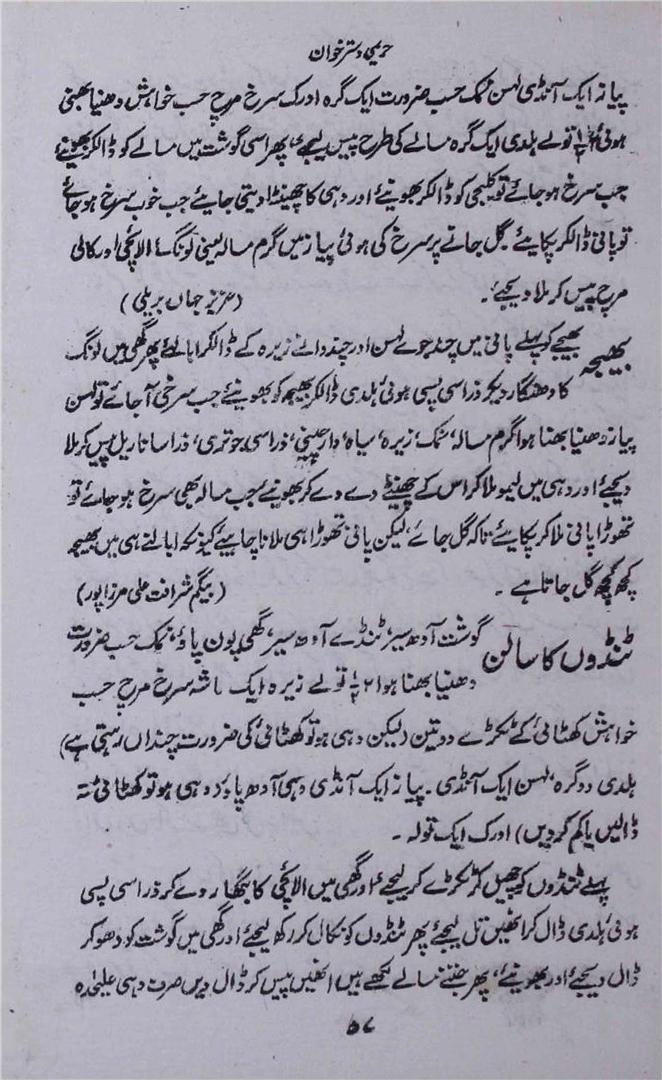 حریمی دسترخوان
پیاز ایک آنڈی لہسن نمک حسب ضرورت ایک گرہ ادرک سرخ مرچ حسب خواہش دھنیا بھنی
ہوئی ۲½ تولے ہلدی ایک گرہ مسالے کی طرح پیس لیجئے، پھر اسی گوشت میں مسالے کو ڈالکر بھونیے
جب سرخ ہو جائے تو کلیجی کو ڈالکر بھونیئے اور دہی کا چھینٹا دیتی جائیے جب خوب سرخ ہو جائے
تو پانی ڈالکر پکایئے۔ گل جانے پر سرخ کی ہوئی پیاز میں گرم مسالہ یعنی لونگ، الائچی اور کالی
مرچ پیس کر ملا دیجئے۔ (عزیز جہاں بریلی)
بھیجہ بھیجے کو پہلے پانی میں چند جوئے لہسن اور چند دانے زیرہ کے ڈالکر ابالئے پھر گھی میں لونگ
کا دھنگار دیکر ذراسی پسی ہوئی ہلدی ڈالکر بھیجہ کو بھونیئے جب سرخی آ جائے تو لہسن
پیاز دھنیا بھنا ہوا گرم مسالہ، نمک، زیرہ، سیاہ، دارچینی، ذراسی جوتری، ذرا سا ناریل پیس کر ملا
دیجئے اور دہی میں لیمو ملا کر اس کے چھینٹے دے دے کر بھونیے جب مسالہ بھی سرخ ہو جائے تو
تھوڑا پانی ملا کر پکایئے، تاکہ گل جائے، لیکن پانی تھوڑا ہی ملانا چاہیئے کیونکہ ابالنے ہی میں بھیجہ
کچھ کچھ گل جاتا ہے۔ (بیگم شرافت علی مرزا پور)
ٹنڈوں کا سالن گوشت آدھ سیر، ٹنڈے آدھ سیر، گھی پون پاؤ، نمک حسب ضرورت
دھنیا بھنا ہوا ۲½ تولے زیرہ ایک ماشہ سرخ مرچ حسب
خواہش کھٹائی کے ٹکڑے دو تین (لیکن دہی ہو تو کھٹائی کی ضرورت چنداں رہتی ہے)
ہلدی دو گرہ، لہسن ایک آنڈی۔ پیاز ایک آنڈی دہی آدھ پاؤ (دہی ہو تو کھٹائی نہ
ڈالیں یا کم کر دیں) ادرک ایک تولہ۔
پہلے ٹنڈوں کو چھیل کر ٹکڑے کر لیجئے، اور گھی میں الائچی کا بگھار دے کر ذراسی پسی
ہوئی ہلدی ڈال کر انھیں تل لیجئے پھر ٹنڈوں کو نکال کر رکھ لیجئے اور گھی میں گوشت کو دھو کر
ڈال دیجئے اور بھونیئے، پھر جتنے مسالے لکھے ہیں انھیں پیس کر ڈال دیں صرف دہی علیحدہ
۵۷